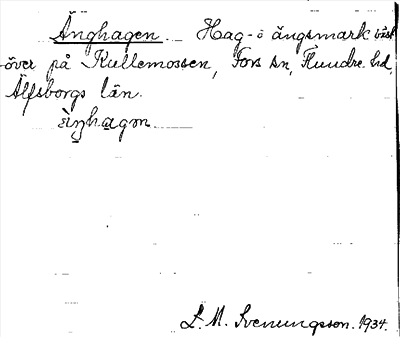 Änghagen. Hag- o ängsmark väst
över på Kullemossen, Fors sn, Flundre hd,
Älfsborgs län.
L. M. Svenungsson. 1934.